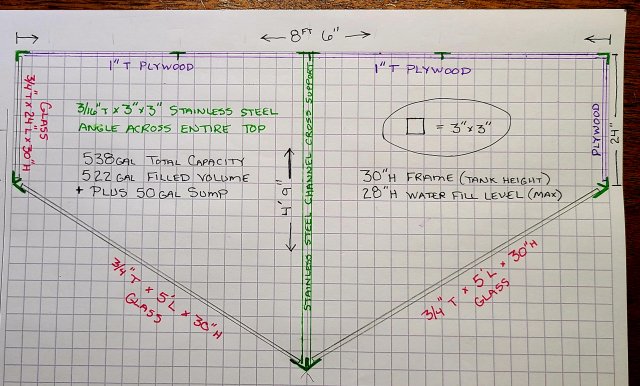 8FT 6"
1" T PLYWOOD
1" T PLYWOOD
GLASS
3/4"T x 24"L x 30"H
3/16"T x 3" x 3" STAINLESS STEEL
ANGLE ACROSS ENTIRE TOP
538 GAL TOTAL CAPACITY
522 GAL FILLED VOLUME
+ PLUS 50 GAL SUMP
4' 9"
STAINLESS STEEL CHANNEL CROSS SUPPORT
= 3" x 3"
30"H FRAME (TANK HEIGHT)
28"H WATER FILL LEVEL (MAX)
PLYWOOD
24"
3/4"T x 5'L x 30"H
GLASS
3/4"T x 5'L x 30"H
GLASS